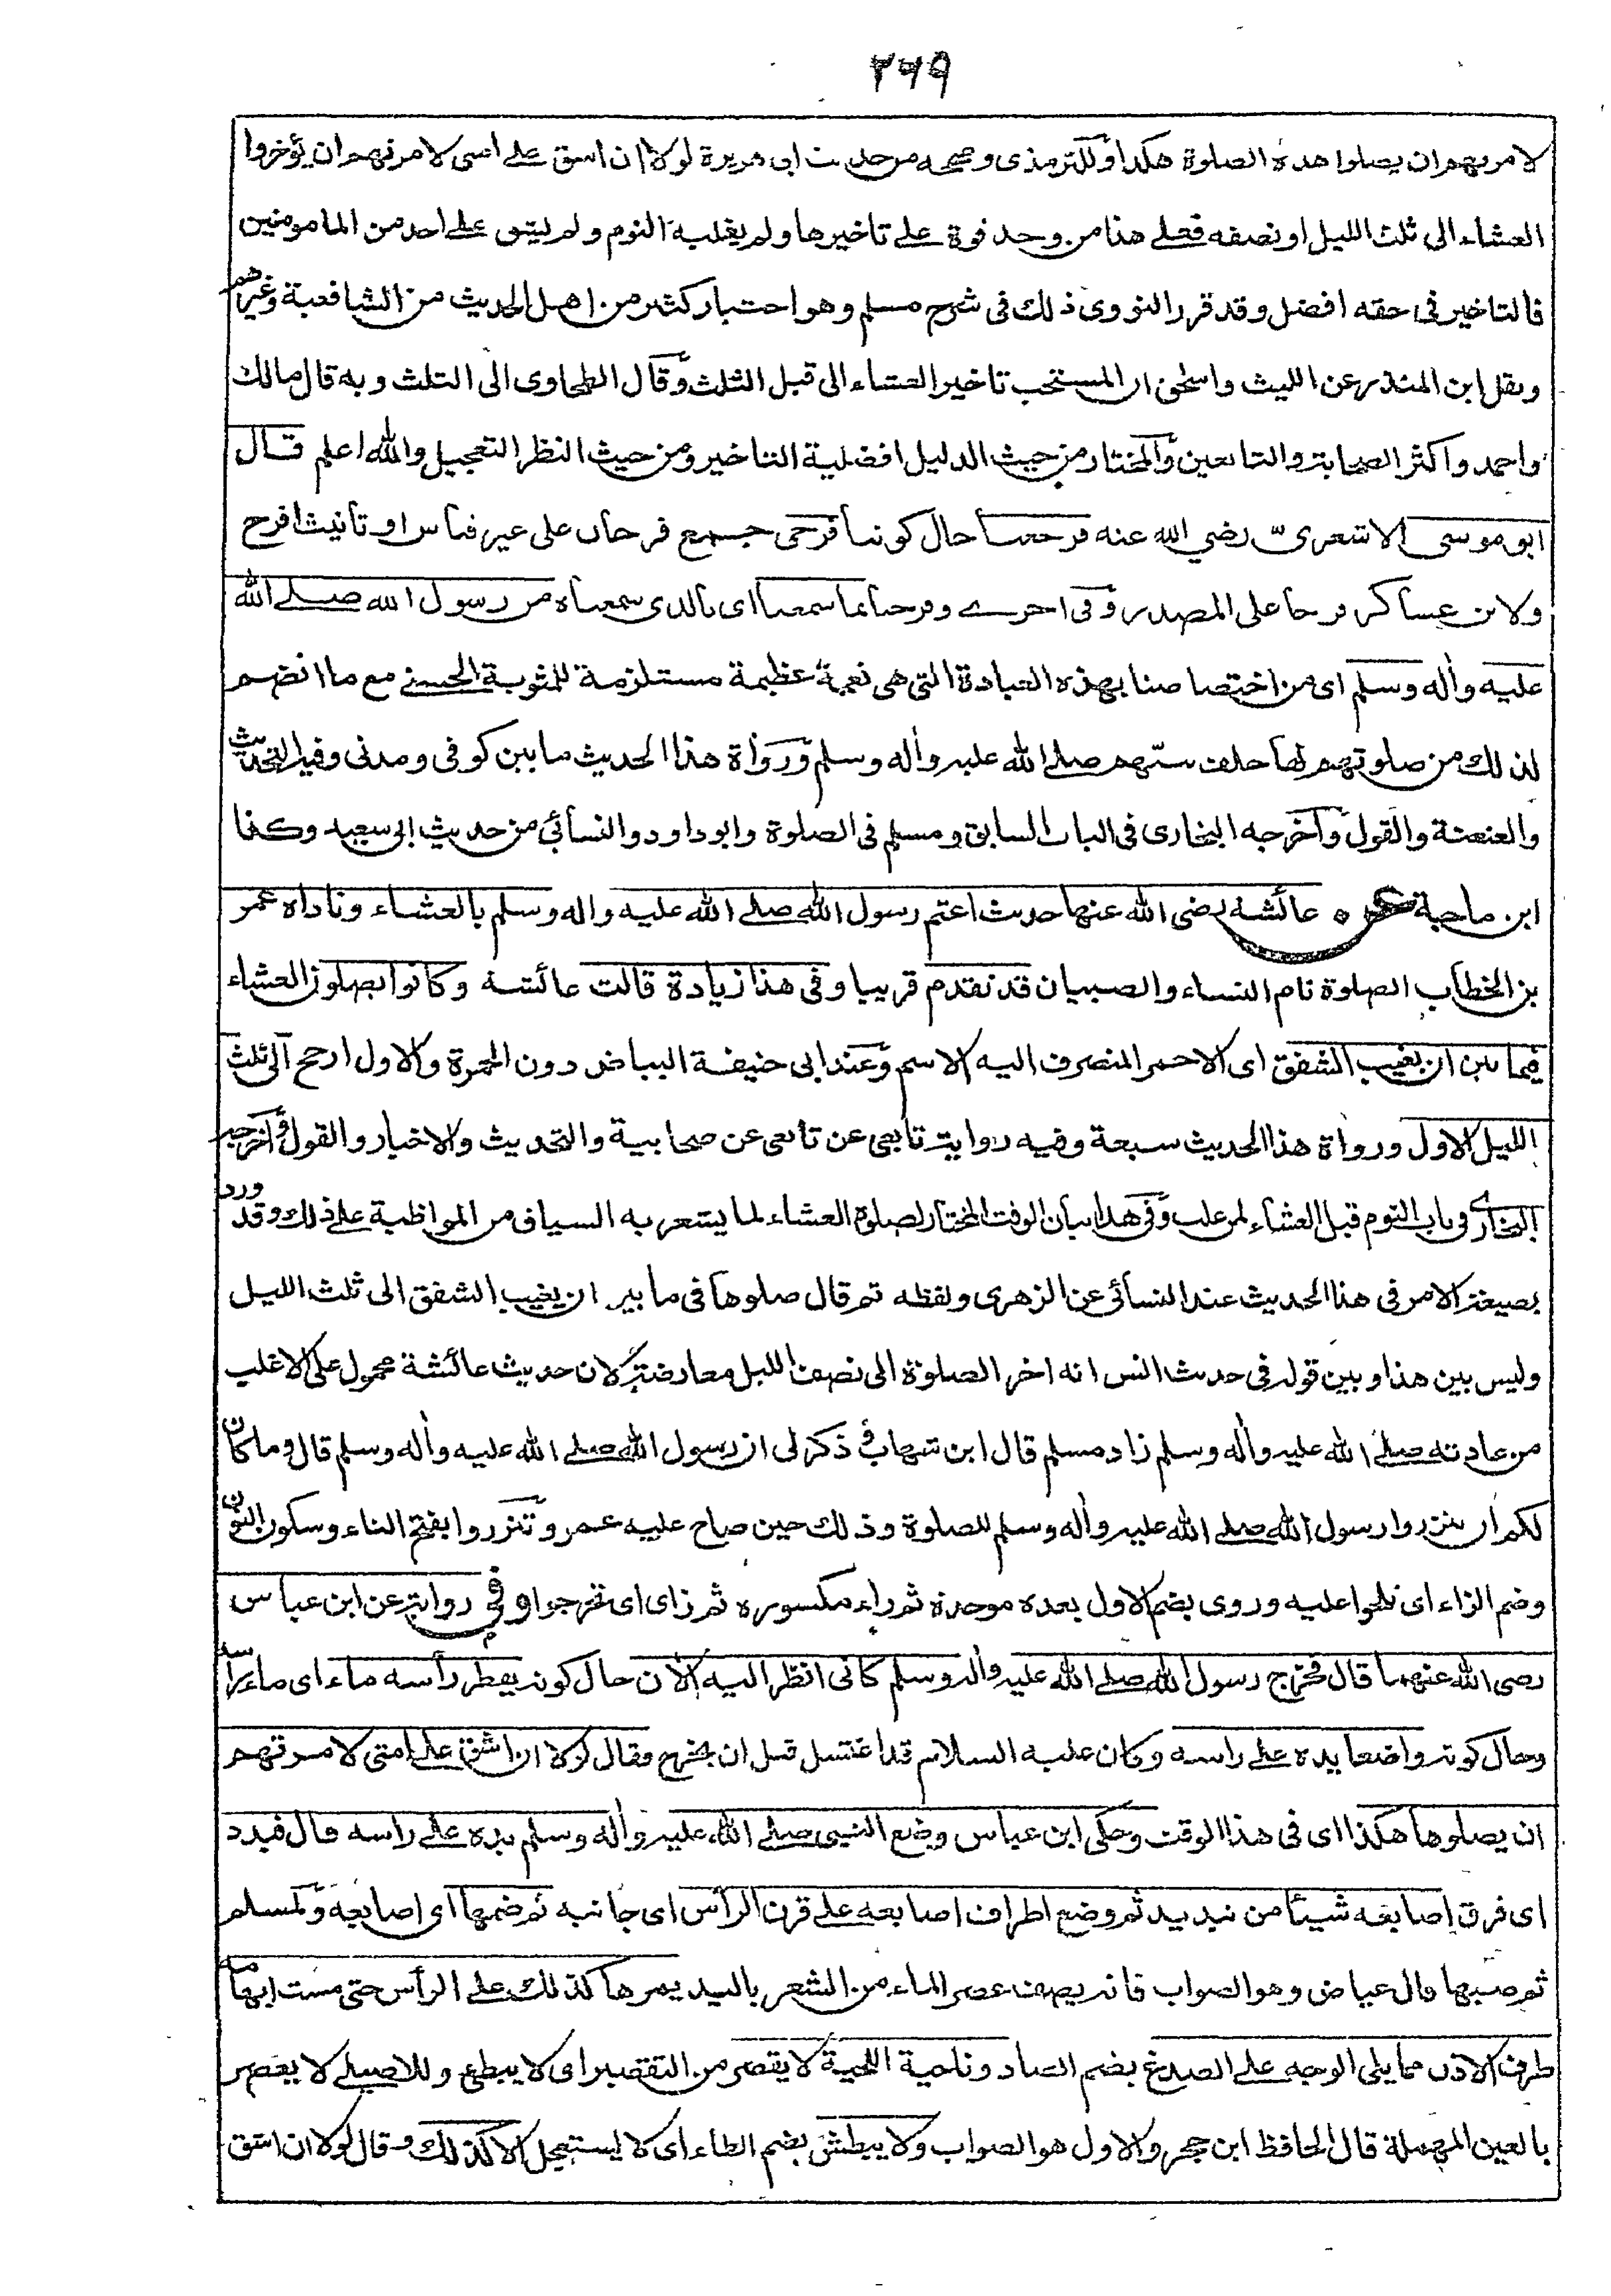 ٢٦٩
لامرتهم ان يصلوا هذه الصلوة هكذا وللترمذى وصححه من حديث ابى هريرة لولا ان اشق على امتى لامرتهم ان يؤخروا
العشاء الى ثلث الليل او نصفه فعلى هذا من وجد قوة على تاخيرها ولم يغلبه النوم ولم يشق على احد من المامومنين
فالتاخير فى حقه افضل وقد قرر النووى ذلك فى شرح مسلم وهو اختيار كثير من اهل الحديث من الشافعية وغيرهم
ونقل ابن المنذر عن الليث واسحق ان المستحب تاخير العشاء الى قبل الثلث وقال الطحاوى الى الثلث وبه قال مالك
واحمد واكثر الصحابة والتابعين والمختار من حيث الدليل افضلية التاخير ومن حيث النظر التعجيل والله اعلم قال
ابو موسى الاشعرى رضي الله عنه فرجعنا حال كوننا فرحى جمع فرحان على غير قياس او تانيث افرح
ولابن عساكر فرحا على المصدر وفى اخرى وفرحنا بما سمعنا اى بالذى سمعناه من رسول الله صلى الله
عليه وأله وسلم اى من اختصاصنا بهذه العبادة التى هى نعمة عظيمة مستلزمة للمثوبة الحسنى مع ما انضم
لذلك من صلوتهم لها خلف نبيهم صلى الله عليه وأله وسلم ورواة هذا الحديث ما بين كوفى ومدنى وفيه التحديث
والعنعنة والقول وأخرجه البخارى فى الباب السابق ومسلم فى الصلوة وابو داود والنسائى من حديث ابى سعيد وكذا
ابن ماجة عن عائشة رضى الله عنها حديث اعتم رسول الله صلى الله عليه واله وسلم بالعشاء وناداه عمر
بن الخطاب الصلوة نام النساء والصبيان قد تقدم قريبا وفى هذا زيادة قالت عائشة وكانوا يصلون العشاء
فيما بين ان يغيب الشفق اى الاحمر المنصرف اليه الاسم وعند ابى حنيفة البياض دون الحمرة والاول ارجح الى ثلث
الليل الاول ورواة هذا الحديث سبعة وفيه رواية تابعى عن تابعى عن صحابية والتحديث والاخبار والقول وأخرجه
البخارى فى باب النوم قبل العشاء لمن غلب وفى هذا بيان الوقت المختار لصلوة العشاء لما يشعر به السياق من المواظبة على ذلك وقد ورد
بصيغة الامر فى هذا الحديث عند النسائى عن الزهرى ولفظه ثم قال صلوها فى ما بين ان يغيب الشفق الى ثلث الليل
وليس بين هذا وبين قوله فى حديث انس انه اخر الصلوة الى نصف الليل معارضة لان حديث عائشة محمول على الاغلب
من عادته صلى الله عليه وأله وسلم زاد مسلم قال ابن شهاب وذكر لى ان رسول الله صلى الله عليه وأله وسلم قال وما كان
لكم ان تنزروا رسول الله صلى الله عليه وأله وسلم للصلوة وذلك حين صاح عليه عمر وتنزروا بفتح التاء وسكون النون
وضم الزاء اى تلحوا عليه وروى بضم الاول بعده موحدة ثم راء مكسورة ثم زاى اى تخرجوا وفى رواية عن ابن عباس
رضى الله عنهما قال فخرج رسول الله صلى الله عليه وأله وسلم كانى انظر اليه الآن حال كونه يقطر رأسه ماء اى ماء رأسه
وحال كونه واضعا يده على راسه وكان عليه السلام قد اغتسل قبل ان يخرج فقال لولا ان اشق على امتى لامرتهم
ان يصلوها هكذا اى فى هذا الوقت وحكى ابن عباس وضع النبى صلى الله عليه وأله وسلم يده على راسه قال فبدد
اى فرق اصابعه شيئا من تبديد ثم وضع اطراف اصابعه على قرن الرأس اى جانبه ثم ضمها اى اصابعه ولمسلم
ثم صبها قال عياض وهو الصواب فانه يصف عصر الماء من الشعر باليد يمرها كذلك على الرأس حتى مست ابهامه
طرف الاذن مما يلى الوجه على الصدغ بضم الصاد وناحية اللحية لا يقصر من التقصير اى لا يبطئ وللاصيلى لا يعصر
بالعين المهملة قال الحافظ ابن حجر والاول هو الصواب ولا يبطش بضم الطاء اى لا يستعجل الا كذلك وقال لولا ان اشق